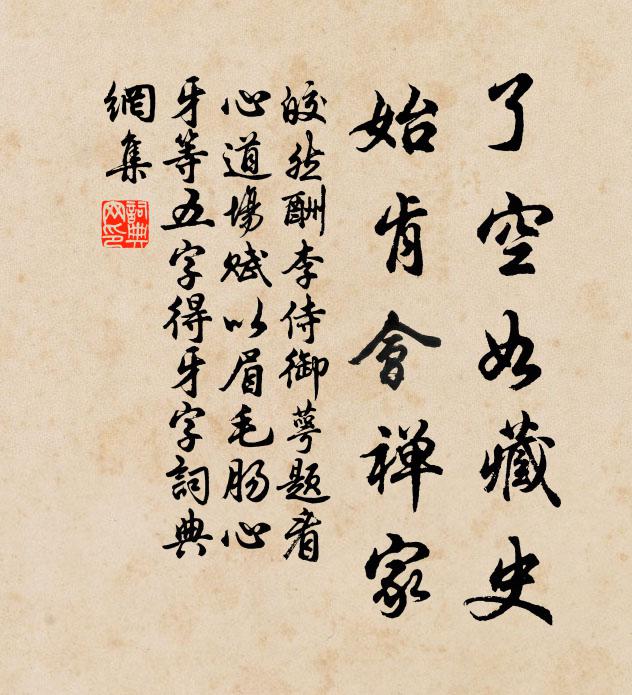 了空如藏史
始肯會禅家
皎然酬李侍御萼题看
心道場赋以眉毛肠心
牙等五字得牙字詞典
網集
詞典
网印